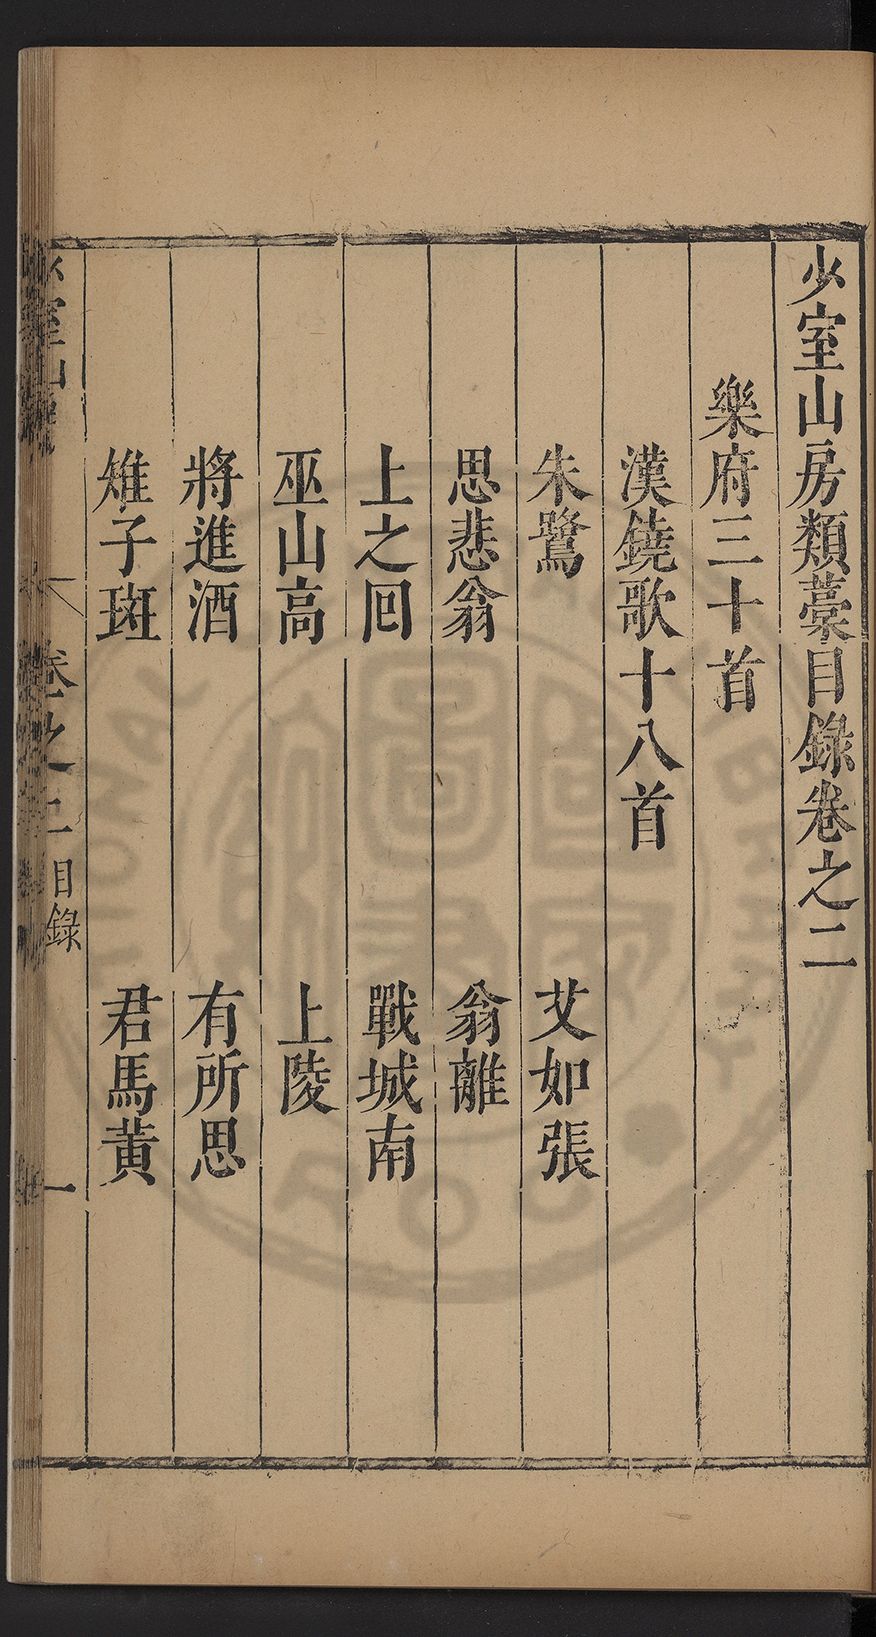 少室山房類藁目錄卷之二
樂府三十首
漢鐃歌十八首
朱鷺 艾如張
思悲翁 翁離
上之囘 戰城南
巫山高 上陵
將進酒 有所思
雉子班 君馬黃
少室山房 卷之二 目錄 一